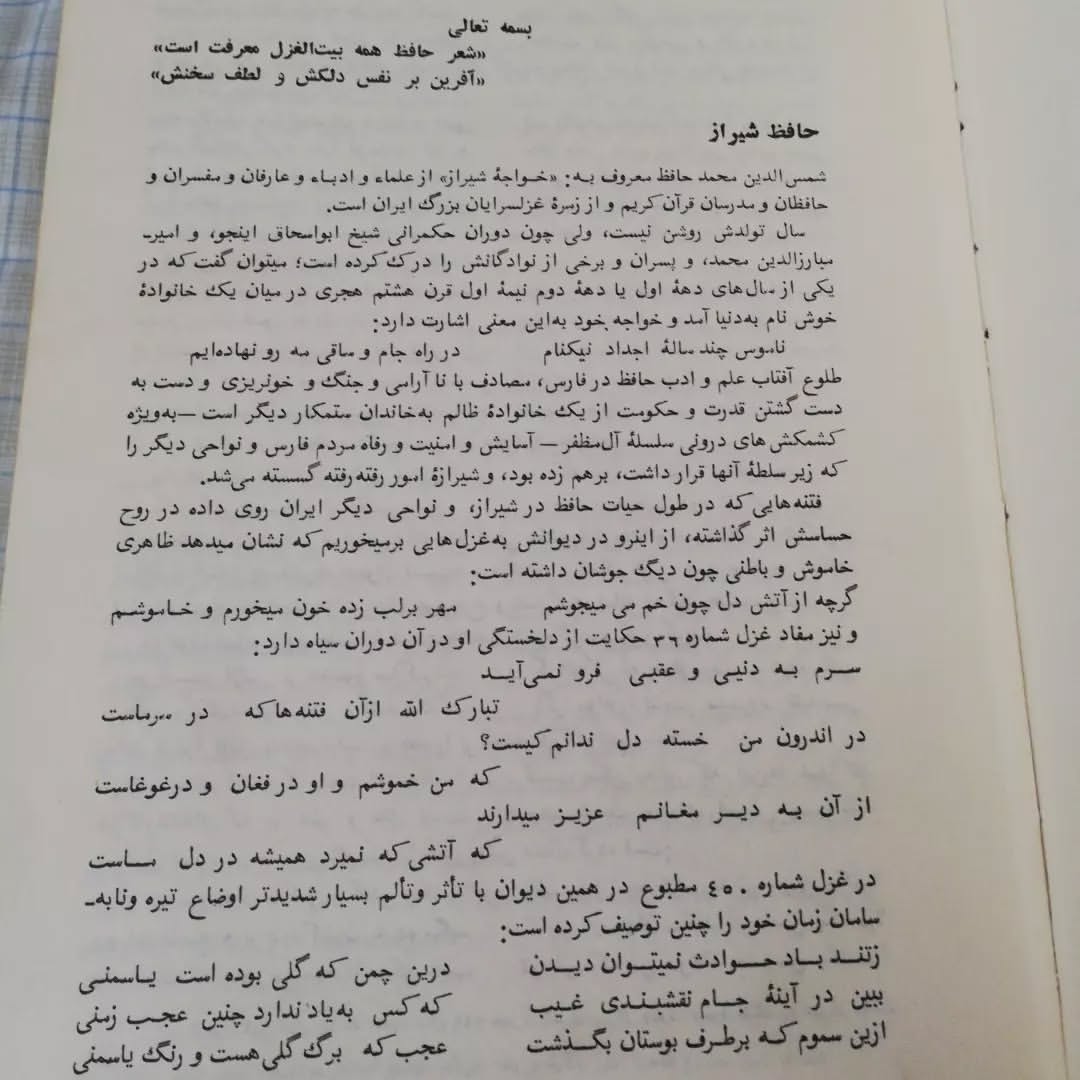 بسمه تعالی
«شعر حافظ همه بیت‌الغزل معرفت است»
«آفرین بر نفس دلکش و لطف سخنش»
حافظ شیراز
شمس‌الدین محمد حافظ معروف به: «خواجهٔ شیراز» از علماء و ادباء و عارفان و مفسران و
حافظان و مدرسان قرآن کریم و از زمرهٔ غزلسرایان بزرگ ایران است.
سال تولدش روشن نیست، ولی چون دوران حکمرانی شیخ ابواسحاق اینجو، و امیر-
مبارزالدین محمد، و پسران و برخی از نوادگانش را درک کرده است؛ میتوان گفت که در
یکی از سال‌های دههٔ اول یا دههٔ دوم نیمهٔ اول قرن هشتم هجری در میان یک خانوادهٔ
خوش نام به‌دنیا آمد و خواجه خود به‌این معنی اشارت دارد:
ناموس چند سالهٔ اجداد نیکنام در راه جام و ساقی مه رو نهاده‌ایم
طلوع آفتاب علم و ادب حافظ در فارس، مصادف با نا آرامی و جنگ و خونریزی و دست به
دست گشتن قدرت و حکومت از یک خانوادهٔ ظالم به‌خاندان ستمکار دیگر است —به‌ویژه
کشمکش‌های درونی سلسلهٔ آل‌مظفر— آسایش و امنیت و رفاه مردم فارس و نواحی دیگر را
که زیر سلطهٔ آنها قرار داشت، برهم زده بود، و شیرازهٔ امور رفته‌رفته گسسته می‌شد.
فتنه‌هایی که در طول حیات حافظ در شیراز، و نواحی دیگر ایران روی داده در روح
حساسش اثر گذاشته، از اینرو در دیوانش به‌غزل‌هایی برمیخوریم که نشان میدهد ظاهری
خاموش و باطنی چون دیگ جوشان داشته است:
گرچه از آتش دل چون خم می میجوشم مهر برلب زده خون میخورم و خاموشم
و نیز مفاد غزل شماره ۳۶ حکایت از دلخستگی او در آن دوران سیاه دارد:
سرم به دنیی و عقبی فرو نمی‌آید
تبارک الله ازآن فتنه‌ها که در سرماست
در اندرون من خسته دل ندانم کیست؟
که من خموشم و او در فغان و درغوغاست
از آن به دیر مغانم عزیز میدارند
که آتشی که نمیرد همیشه در دل ماست
در غزل شماره ۴۵۰ مطبوع در همین دیوان با تأثر وتألم بسیار شدیدتر اوضاع تیره ونابه-
سامان زمان خود را چنین توصیف کرده است:
زتند باد حوادث نمیتوان دیدن درین چمن که گلی بوده است یاسمنی
ببین در آینهٔ جام نقشبندی غیب که کس به‌یاد ندارد چنین عجب زمنی
ازین سموم که برطرف بوستان بگذشت عجب که برگ گلی هست و رنگ یاسمنی